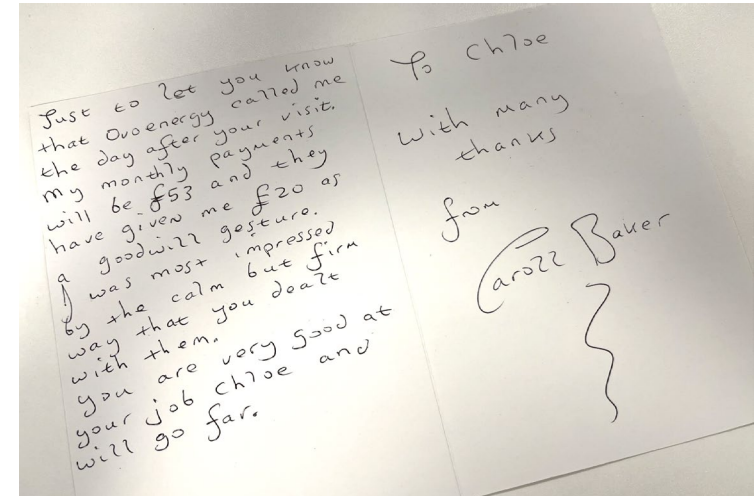 Just to let you know
that Ovoenergy called me
the day after your visit.
my monthly payments
will be £53 and they
have given me £20 as
a goodwill gesture.
I was most impressed
by the calm but firm
way that you dealt
with them.
you are very good at
your job chloe and
will go far.
To Chloe
with many
thanks
from
Caroll Baker